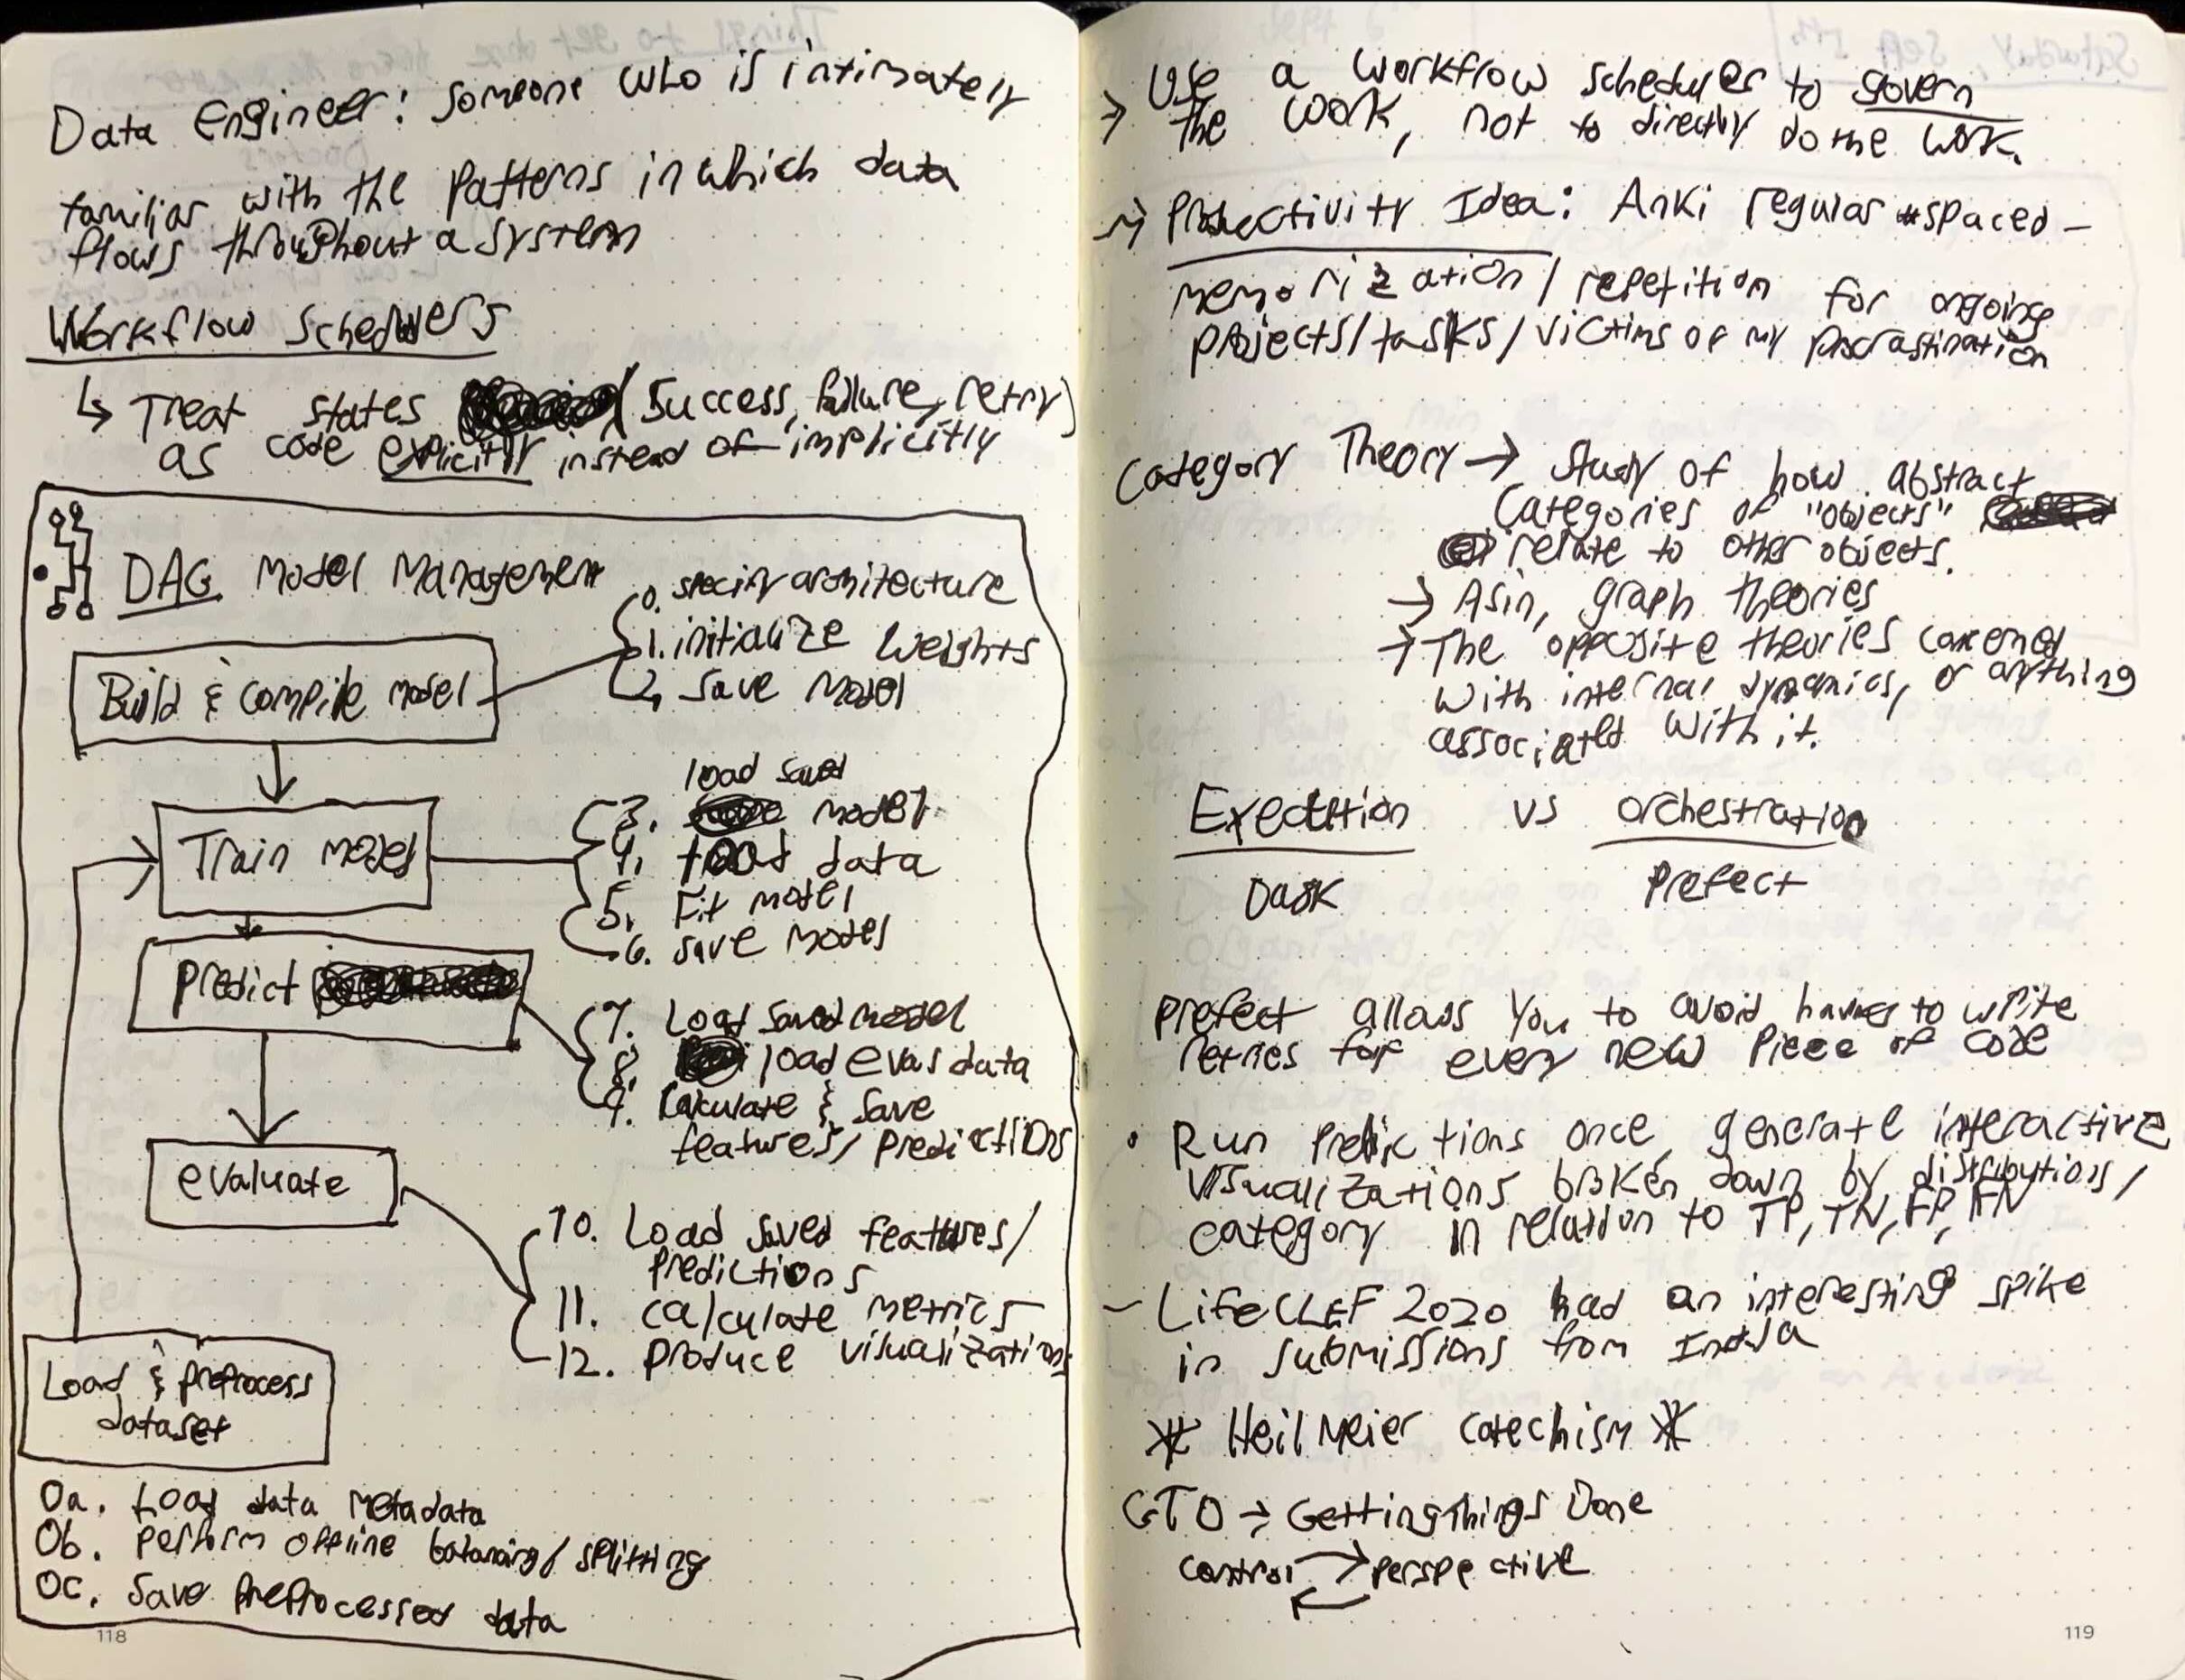 Data Engineer: someone who is intimately
familiar with the patterns in which data
flows throughout a system
Workflow Schedulers
↳ Treat states (Success, failure, retry)
as code explicitly instead of implicitly
DAG Model Management
Build & compile model
0. specify architecture
1. initialize weights
2. Save Model
Train model
load saved
3. model
4. load data
5. Fit model
6. save model
Predict
7. Load saved model
8. load eval data
9. Calculate & save
features/predictions
evaluate
10. Load saved features/
predictions
11. calculate metrics
12. produce visualizations
Load & preprocess
dataset
0a. Load data metadata
0b. Perform offline balancing/splitting
0c. Save preprocessed data
118
→ Use a workflow scheduler to govern
the work, not to directly do the work.
→ Productivity Idea: Anki regular spaced-
memorization/repetition for ongoing
projects/tasks/victims of my procrastination
Category Theory → Study of how abstract
Categories of "objects"
relate to other objects.
→ As in, graph theories
→ The opposite theories concerned
with internal dynamics, or anything
associated with it.
Execution vs orchestration
Dask Prefect
Prefect allows you to avoid having to write
retries for every new piece of code
• Run Predictions once, generate interactive
visualizations broken down by distributions/
category in relation to TP, TN, FP, FN
- LifeCLEF 2020 had an interesting spike
in submissions from India
* HeilMeier Catechism *
GTD → Getting Things Done
control → perspective
←
119